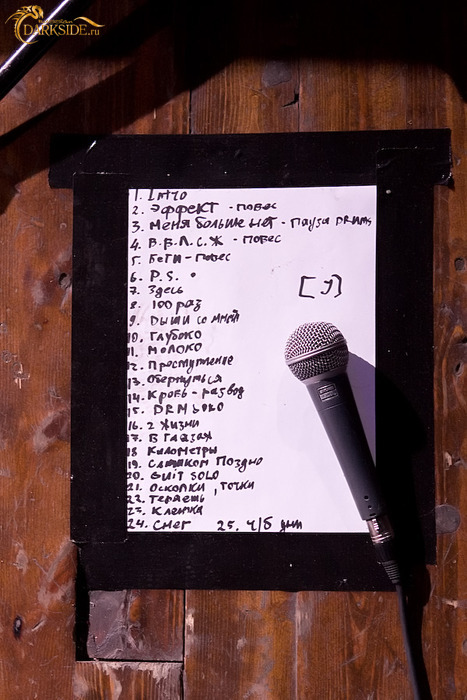 DARKSIDE.ru
1. Intro
2. Эффект - повес
3. Меня больше нет - пауза DRUMS
4. В.В.Л.С.Ж - повес
5. Беги - повес
6. P.S.
7. Здесь
8. 100 раз
9. Дыши со мной
10. Глубоко
11. Молоко
12. Преступление
13. Обернуться
14. Кровь - развод
15. DRM SOLO
16. 2 жизни
17. В глазах
18 Километры
19. Слишком Поздно
20. GUIT SOLO
21. Осколки, точки
22. Теряешь
23. Клетка
24. Снег 25. ч/б дни